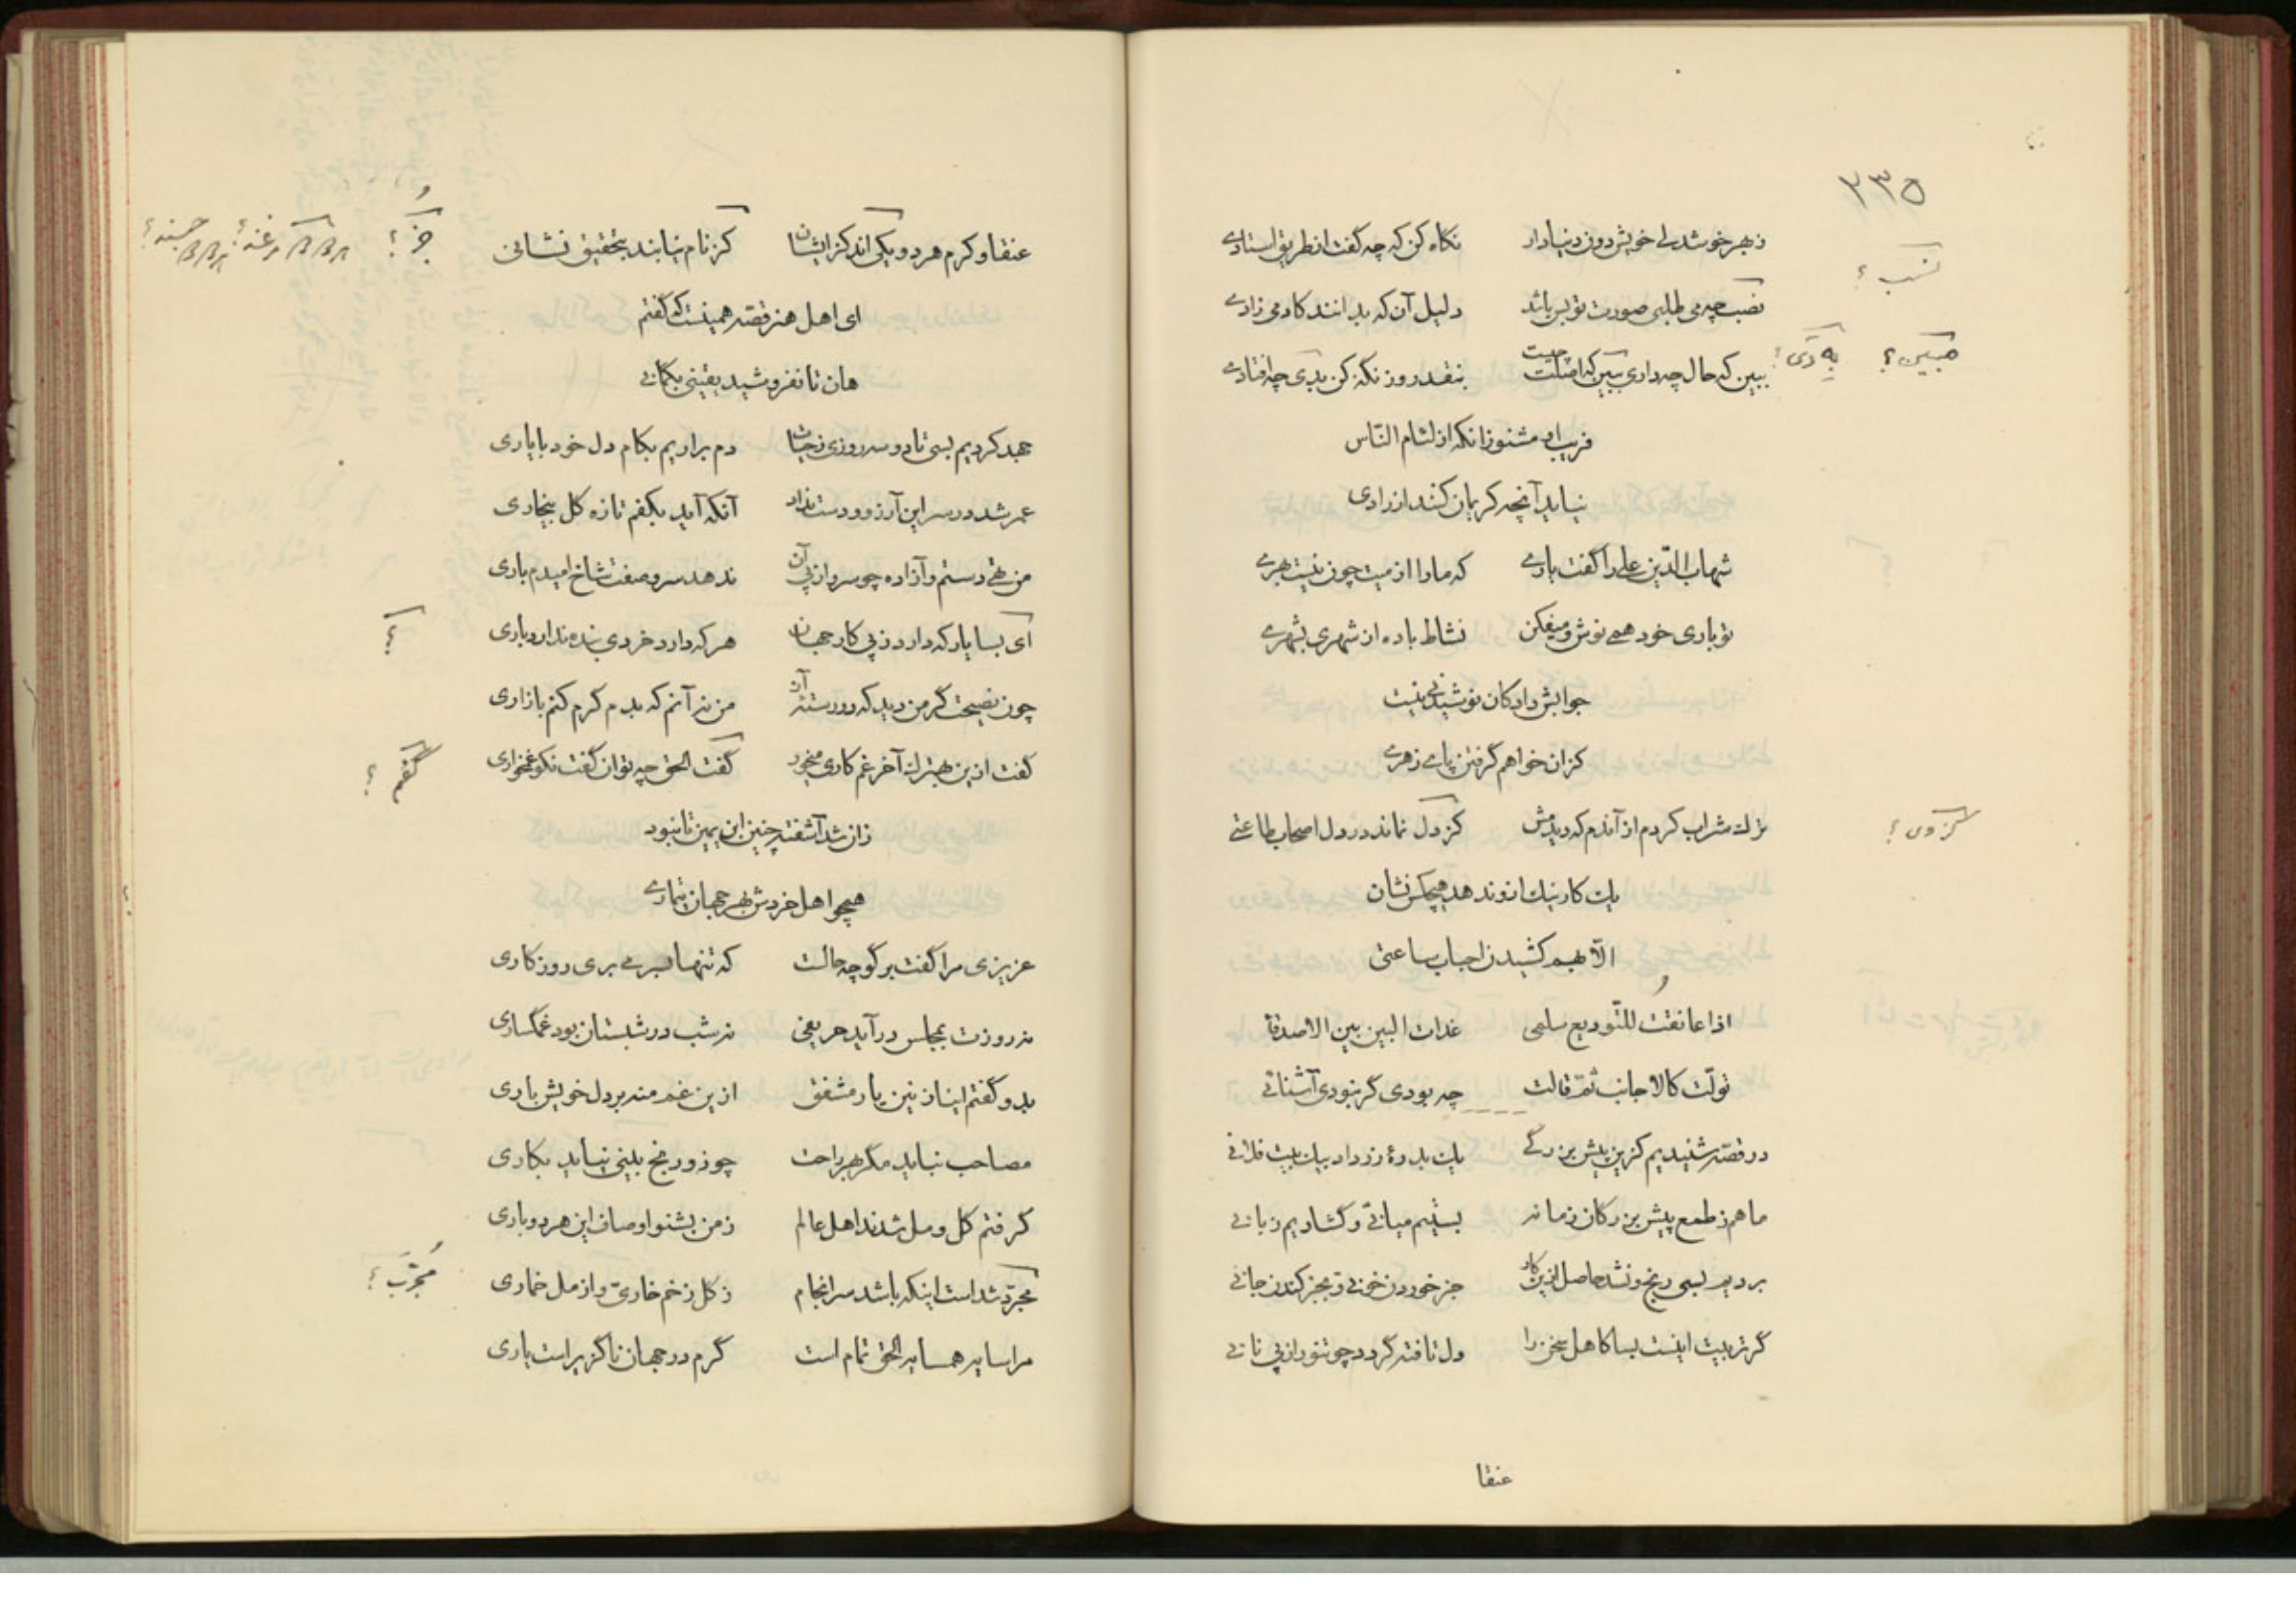 ٢٣٥
زبهر خوشدلی خویش دون دنیادار نکاه کن که چه گفت از طریق استادی
نسب ؟
نصب چه می طلبی صورت تو بس باشد دلیل آن که بدانند کادمی زادی
ببین که حال چه داری مبین که اصلت چیست بنقد روز نگه کن بدی چه افتادی
مبین ؟
فریب او مشنو زانکه از لئام النّاس
نیاید آنچه کریمان کنند از رادی
شهاب الدّین علی را گفت یاری که ما را از میت چون نیست بهری
تو باری خود همی نوش و میفکن نشاط باده از شهری بشهری
جوابش داد کان نوشیدنی نیست
کزان خواهم گرفتن پای زهری
ترك شراب کردم از آندم که دیدمش کز دل نماند در دل اصحاب طاعتی
کزوی ؟
یك کار نیك ازو ندهد هیچکس نشان
الّا بهم کشیدن احباب ساعتی
اذا عانقت للتّودیع سلمی غدات البین بین الاصدقا
تولّت کالاجانب ثمّ قالت چه بودی گر نبودی آشنائی
در قصّه شنیدیم کزین پیش بزرگی یك بدرهٔ زر داد بیك بیت فلانی
ما هم ز طمع پیش بزرکان زمانه بستیم میانی و گشادیم زبانی
بردیم بسی رنج و نشد حاصل ازین کار جز خوردن خونی و بجز کندن جانی
گر تربیت اینست بسا کاهل سخن را دل تافته گردد چو تنور از پی نانی
عنقا
عنقا و کرم هر دو یکی اند کز ایشان کز نام نیابند بتحقیق نشانی
جز ؟
ای اهل هنر قصّه همینست که گفتم
هان تا نفروشید یقینی بکمانی
جهد کردیم بسی تا دو سه روزی ز جهان دم براریم بکام دل خود با یاری
عمر شد در سر این آرزو و دست نداد آنکه آید بکفم تازه کل بیخاری
من تهی دستم و آزاده چو سرو از پی آن ندهد سرو صفت شاخ امیدم باری
ای بسا یار که دارد ز پی کار جهان هر که دارد خردی بنده ندارد باری
چون نصیحت گر من دید که در رسته آن من نه آنم که بدم گرم کنم بازاری
گفت ازین بهترك آخر غم کاری میخور گفت الحق چه توان گفت نکو غمخواری
گفتم ؟
زان شد آشفته چنین ابن یمین تا نبود
همچو اهل خردش بهر جهان تیماری
عزیزی مرا گفت بر گو چه حالت که تنها بسر می بری روزکاری
نه روزت بمجلس در آید حریفی نه شب در شبستان بود غمگساری
بدو گفتم ای نازنین یار مشفق ازین غم منه بر دل خویش باری
مصاحب نباید مگر بهر راحت چو زو رنج بینی نیاید بکاری
کرفتم کل و مل شدند اهل عالم ز من بشنو اوصاف این هر دو باری
مجرّد شد است اینکه باشد سرانجام ز کل زخم خاری و از مل خماری
مُجَرَّب ؟
مرا سایه همسایه الحق تمام است گرم در جهان ناگزیر است یاری